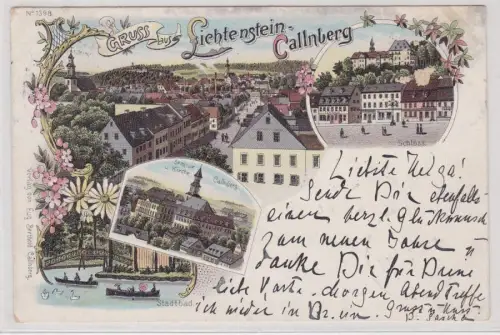 No 1398
GRUSS aus
Lichtenstein-
Callnberg
Schloss
Kirche
Callnberg
Stadtbad
Liebste Helga!
Sende Dir ebenfalls
einen herzl. Glückwunsch
zum neuen Jahre u
danke Dir für Deine
liebe Karte. Morgen Abend Treffe
ich wieder in
Gruss u Kuss